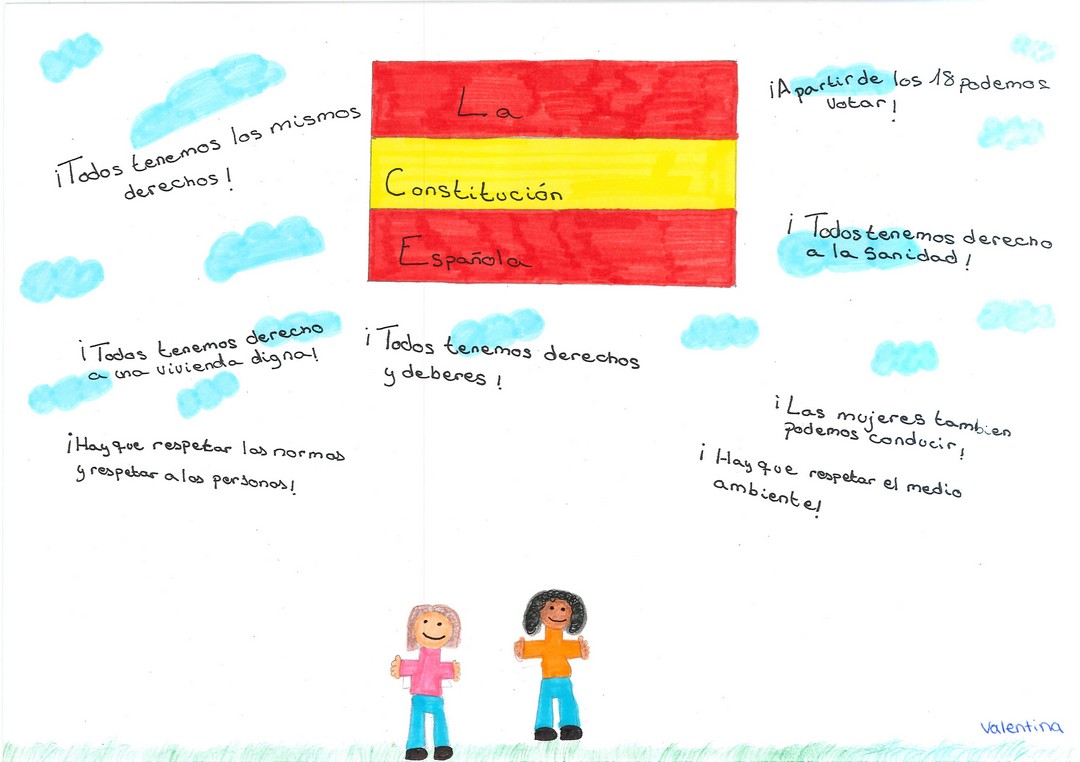 La
Constitución
Española
¡Todos tenemos los mismos
derechos!
¡A partir de los 18 podemos
votar!
¡Todos tenemos derecho
a la sanidad!
¡Todos tenemos derecho
a una vivienda digna!
¡Todos tenemos derechos
y deberes!
¡Las mujeres tambien
podemos conducir!
¡Hay que respetar las normas
y respetar a las personas!
¡Hay que respetar el medio
ambiente!
Valentina